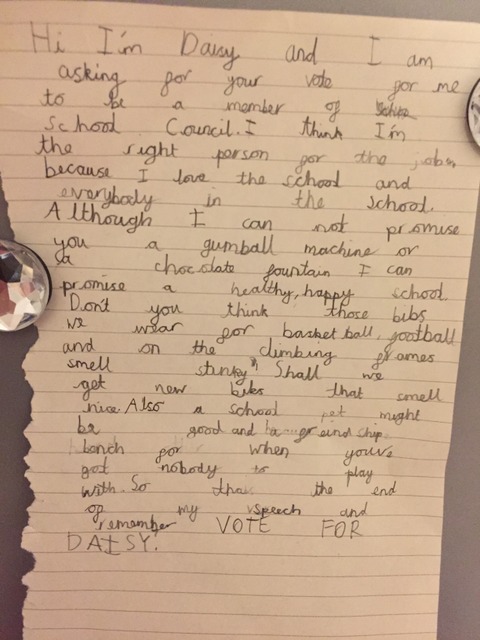 Hi I'm Daisy and I am
asking for your vote for me
to be a member of
school Council. I think I'm
the right person for the job
because I love the school and
everybody in the school.
Although I can not promise
you a gumball machine or
a chocolate fountain I can
promise a healthy, happy school.
Don't you think those bibs
we wear for basket ball, football
and on the climbing frames
smell stinky? Shall we
get new bibs that smell
nice. Also a school pet might
be good and a freind ship
bench for when you've
got nobody to play
with. So that the end
of my speech and
remember VOTE FOR
DAISY.